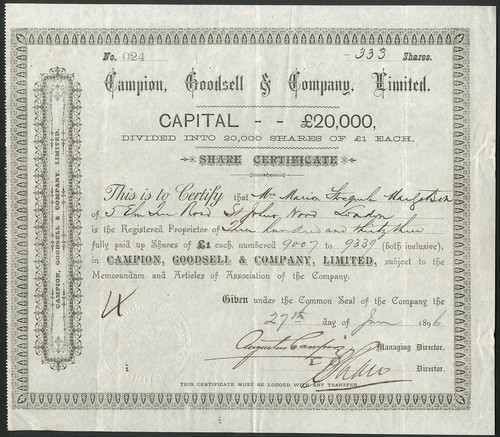 No. 024 - 333 Shares.
Campion, Goodsell & Company, Limited.
CAPITAL - - £20,000,
DIVIDED INTO 20,000 SHARES OF £1 EACH.
SHARE CERTIFICATE
This is to Certify that Mrs Marion
of 5 Elm Tree Road St Johns Wood London
is the Registered Proprietor of Three hundred and thirty three
fully paid up Shares of £1 each, numbered 9007 to 9339 (both inclusive),
in CAMPION, GOODSELL & COMPANY, LIMITED, subject to the
Memorandum and Articles of Association of the Company.
Given under the Common Seal of the Company the
27th day of June 1896
Augustus Campion Managing Director.
Director.
THIS CERTIFICATE MUST BE LODGED WITH ANY TRANSFER.
CAMPION, GOODSELL & COMPANY, LIMITED.